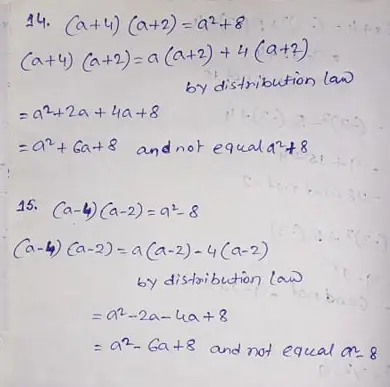 14. (a+4) (a+2) = a²+8
(a+4) (a+2) = a(a+2) + 4(a+2)
by distribution law
= a²+2a + 4a+8
= a²+6a+8 and not equal a²+8
15. (a-4)(a-2) = a²-8
(a-4)(a-2) = a(a-2) - 4(a-2)
by distribution law
= a²-2a-4a+8
= a²-6a+8 and not equal a²-8